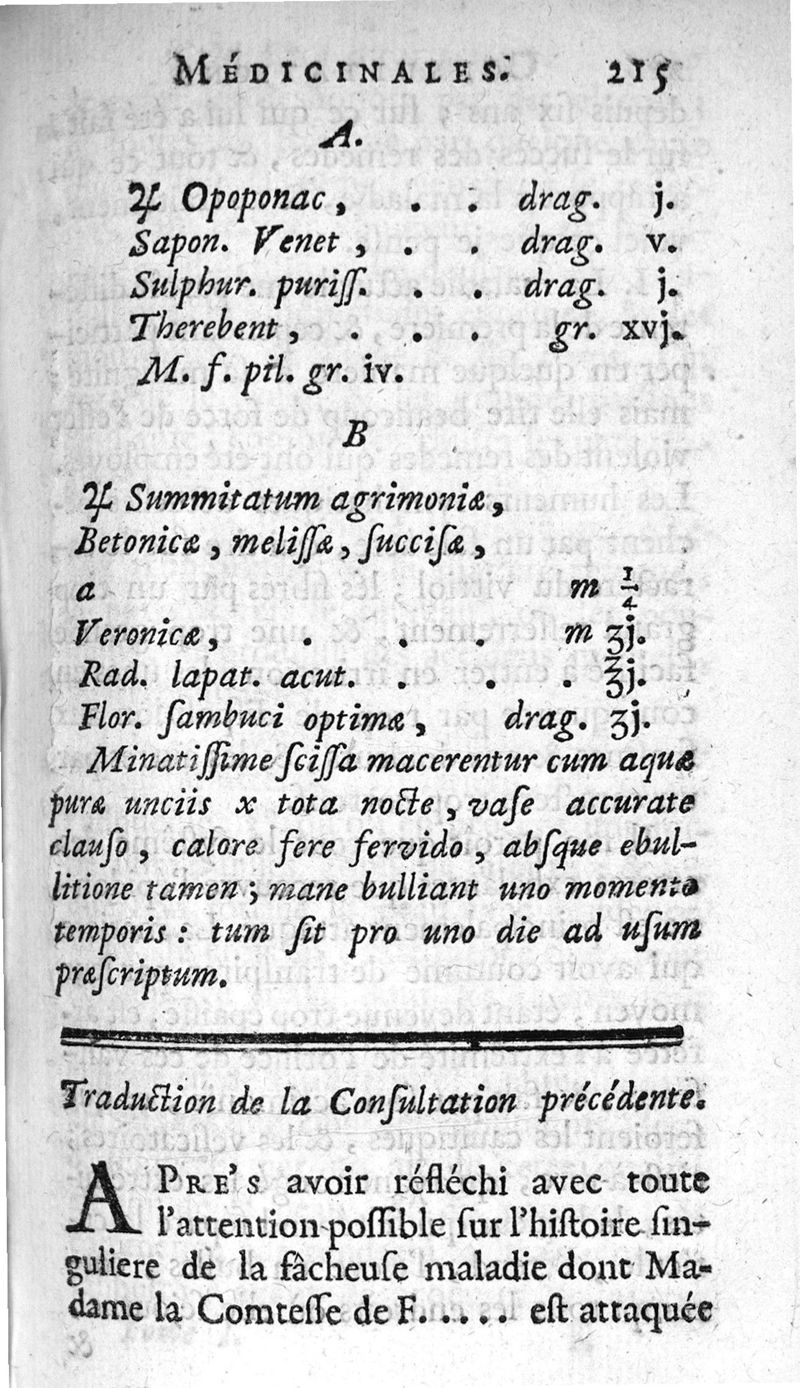 MÉDICINALES. 215
A.
♃ Opoponac, . . drag. j.
Sapon. Venet, . . drag. v.
Sulphur. puriſſ. . . drag. j.
Therebent, . . . gr. xvj.
M. f. pil. gr. iv.
B
♃ Summitatum agrimoniæ,
Betonicæ, meliſſæ, ſucciſæ,
a m 1/4
Veronicæ, . . . m ʒj.
Rad. lapat. acut. . . . ℥j.
Flor. ſambuci optimæ, drag. ʒj.
Minatiſſime ſciſſa macerentur cum aquæ
puræ unciis x tota nocte, vaſe accurate
clauſo, calore fere fervido, abſque ebul-
litione tamen; mane bulliant uno momento
temporis: tum ſit pro uno die ad uſum
præſcriptum.
Traduction de la Conſultation précédente.
APRE'S avoir réfléchi avec toute
l'attention poſſible ſur l'hiſtoire ſin-
guliere de la fâcheuſe maladie dont Ma-
dame la Comteſſe de F..... eſt attaquée